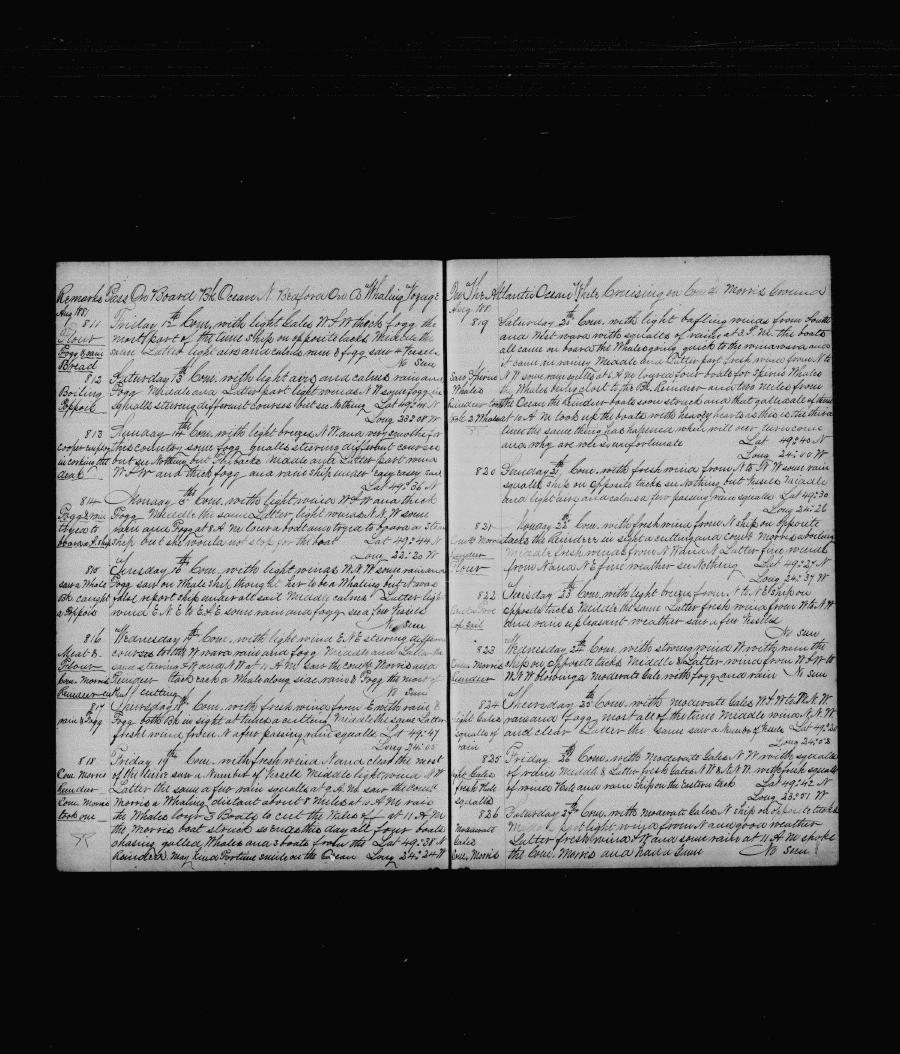 Remarks Pass On Board Bk Ocean N. Bedford On A Whaling Voyage
Aug 1881
811 Friday 12th Com, with light Gales W.S.W thick fogg the
Flour most part of the time ship on opposite tacks Middle the
Fogg & rain same Latter light airs and calms rain & fogg saw 4 Vessels
Bread No Sun
812 Saturday 13th Com, with light airs and calms rain and
Boiling Fogg Middle and Latter part light winds N.W some fogg in
Poppois squalls stering different courses but see Nothing Lat 49:41 N
Long 23:08 W
813 Sunday 14th Com, with light breezes N.W and very smothe for
Cooper this country some fogg squalls stering different courses
but see Nothing but Middle and Latter part wind
W.S.W and thick fogg and rain ship under easy
Lat 49:36 N
814 Monday 15th Com, with light wind W.S.W and thick
Fogg & rain Fogg Middle the same Latter light winds N.N.W some
tryed to rain and Fogg at 8 A.M lour a boat and tryed to board a Steam
board a S. ship ship but she would not stop for the boat Lat 49:44 N
Long 22:20 W
815 Tuesday 16th Com, with light winds W.N.W some rain and
saw a Whale Fogg saw on Whale ship thought her to be a Whaling but it was
Bk caught false report ship under all sail Middle calms Latter light
a Poppois wind E.N.E to E.S.E some rain and fogg see a few Vessels
No Sun
816 Wednesday 17th Com, with light wind E.N.E stering different
Meat B. courses to the W ward rain and fogg Middle and Latter the
Flour same stering S.W and N.W at 11 A.M saw the Com Morris and
Com. Morris Reindeer each a Whale along side rain & Fogg the most of
Reindeer cutting No Sun
817 Thursday 18th Com, with fresh wind from E with rain &
rain & Fogg Fogg both Bk in sight at tuhes a cutting Middle the same Latter
fresh wind from N after passing rain squalls Lat 49:47
Long 24:05
818 Friday 19th Com, with fresh wind N and clear the most
Com. Morris of the time saw a Number of Vessels Middle light wind N.W
Reindeer Latter the same a few rain squalls at 9 A.M saw the Com
Com. Morris Morris a Whaling distant about 8 Miles at 10 A.M
took one the Whales lour 3 Boats to cut the Whales of at 11 A.M
the Morris boat struck so ends this day all four boats
chasing gallied Whales and 3 boats from the Lat 49:38 N
Reindeer, May Kind Fortune smile on the Ocean Long 24:24 W
On The Atlantic Ocean While Cruising on Com. Morris Ground
Aug. 1881
819 Saturday 20th Com. with light bafling winds from South
and West ward with squalls of rain at 3 P.M. the boats
all came on board the Whales going quick to the windward and
it came on rainey Middle and Latter part fresh wind from N to
Saw Sperm N.W some rain squalls at 6 A.M loured four boats for Sperm Whales
Whales the Whales being clost to the Bk. Reindeer and two miles from
Reindeer the Ocean the Reindeer boats soon struck and that gallied all of them
took 2 Whales at 10 A.M took up the boats with heavy hearts as this is the third
time the same thing has happened when will ever turn come
and why are we so unfortunate Lat 49:40 N
Long 24:00 W
820 Sunday 21st Com. with fresh wind from N to N.W some rain
squalls ship on Opposite tacks see Nothing but Vessels Middle
and light airs and calms a few passing rain squalls Lat 49:30
Long 24:26
821 Monday 22nd Com. with fresh wind from N ship on opposite
Com. Morris tacks the Reindeer in sight a cutting and Com. Morris a boiling
Reindeer Middle fresh winds from N.W and N Latter fine wind
Flour from N and N.E fine weather see Nothing Lat 49:27 N
Long 24:37 W
822 Tuesday 23rd Com. with light breeze from N. to N.E Ship on
opposite tacks Middle the same Latter fresh wind from W to N.W
of Sail and rain unpleasant weather saw a few Vessels
No Sun
823 Wednesday 24th Com. with strong wind W. with rain the
Com. Morris ship on opposite tacks Middle & Latter winds from W.S.W to
Reindeer W.N.W blowing a moderate Gale with fogg and rain No Sun
824 Thursday 25th Com. with moderate Gales W.S.W to W.N.W
light Gales rain and Fogg most all of the time Middle wind N.N.W
squalls of and clear Latter the same saw a Number of Vessels Lat 49:25
rain Long 24:03
825 Friday 26th Com. with Moderate Gales N.W. with squalls
light Gales of rain Middle & Latter fresh Gales N.W & N.N.W. with fresh squalls
fresh Hale of wind Hale and rain ship on the Eastern tack Lat 49:42 N
squalls Long 23:51 W
826 Saturday 27th Com. with moderate Gales N. ship on opposite tacks
Moderate Middle part light wind from N and good weather
Gales Latter fresh wind S.W and some rain at 11 A.M spoke
Com. Morris the Com. Morris and had a Gam No Sun